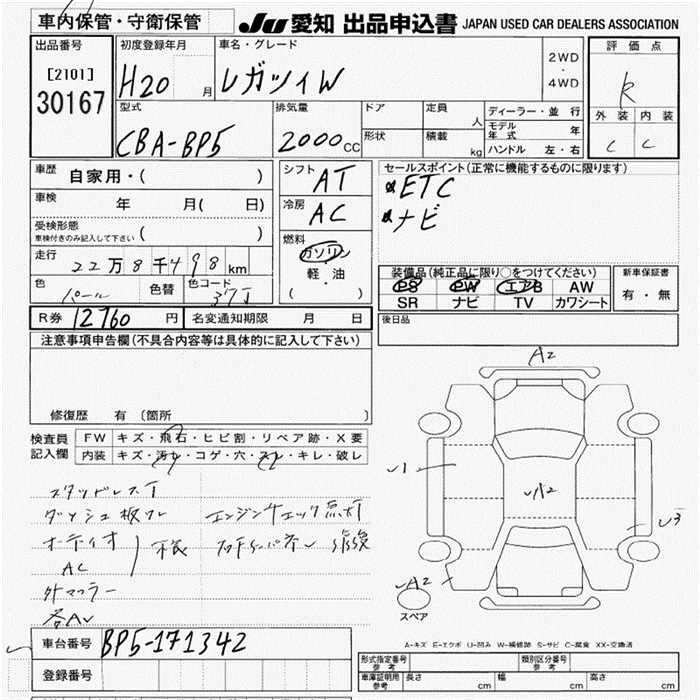 車内保管・守衛保管
JU 愛知 出品申込書 JAPAN USED CAR DEALERS ASSOCIATION
出品番号
[2101]
30167
初度登録年月
H20 月
車名・グレード
レガツィW
2WD
・
4WD
評価点
R
外装 内装
C C
型式
CBA-BP5
排気量
2000 CC
ドア
形状
定員 人
積載 kg
ディーラー・並行
モデル年式 年
ハンドル 左・右
車歴 自家用・( )
車検 年 月( 日)
受検形態
車検付きのみ記入して下さい ( )
走行 22万8千498km
色 パール 色替 色コード 37J
シフト AT
冷房 AC
燃料
ガソリン
軽・油
( )
セールスポイント(正常に機能するものに限ります)
ETC
ナビ
装備品(純正品に限り○をつけてください)
PS PW エアB AW
SR ナビ TV カワシート
新車保証書
有・無
R券 12760 円 名変通知期限 月 日
後日品
注意事項申告欄(不具合内容等は具体的に記入して下さい)
修復歴 有 (箇所 )
検査員
記入欄
FW キズ・飛石・ヒビ割・リペア跡・X要
内装 キズ・汚れ・コゲ・穴・スレ・キレ・破レ
スタッドレスT
ダッシュ板ワレ エンジンチェック点灯
オーディオ
AC
外マフラー
各AU
A2
U1
U2
U3
A2
スペア
車台番号 BP5-171342
登録番号
A-キズ E-エクボ U-凹み W-補修跡 S-サビ C-腐食 XX-交換済
形式指定番号 参考 類別区分番号 参考
車庫証明用 参考 長さ cm 幅 cm 高さ cm